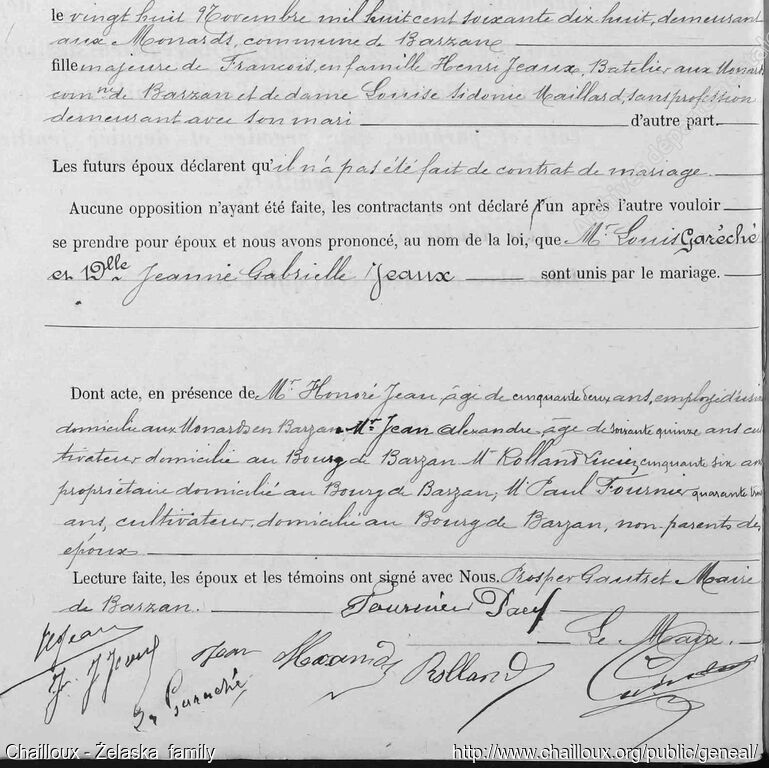 le vingt huit Novembre mil huit cent soixante dix huit, demeurant
aux Monards, commune de Barzan
fille majeure de Francois, en famille Henri Jeaux, Batelier aux Monards
comne de Barzan et de dame Louise Sidonie Maillard, sans profession
demeurant avec son mari d'autre part.
Les futurs époux déclarent qu'il n'a pas été fait de contrat de mariage.
Aucune opposition n'ayant été faite, les contractants ont déclaré l'un après l'autre vouloir
se prendre pour époux et nous avons prononcé, au nom de la loi, que Mr Louis Garéché
et Dlle Jeanne Gabrielle Jeaux sont unis par le mariage.
Dont acte, en présence de Mr Honoré Jean, âgé de cinquante deux ans, employé d'usine
domicilié aux Monards en Barzan, Mr Jean Alexandre âgé de soixante quinze ans cul
tivateur domicilié au Bourg de Barzan Mr Rolland Lucien, cinquante six ans
propriétaire domicilié au Bourg de Barzan, M Paul Fournier quarante trois
ans, cultivateur, domicilié au Bourg de Barzan, non parents des
époux
Lecture faite, les époux et les témoins ont signé avec Nous. Prosper Gautret Maire
de Barzan. Fournier Paul
Le Maire
HJean
J. Jeaux Jean Alexandre Rolland
Ls Garaché
Chailloux - Żelaska family http://www.chailloux.org/public/geneal/